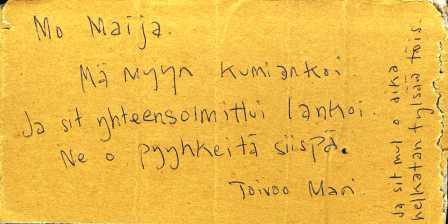 Mo Maija.
Mä myyn kumiankoi.
Ja sit yhteensolmittui lankoi.
Ne o pyyhkeitä siispä.
Toivoo Mari.
Ja sit mul o aika
helkatan tylsää töis.